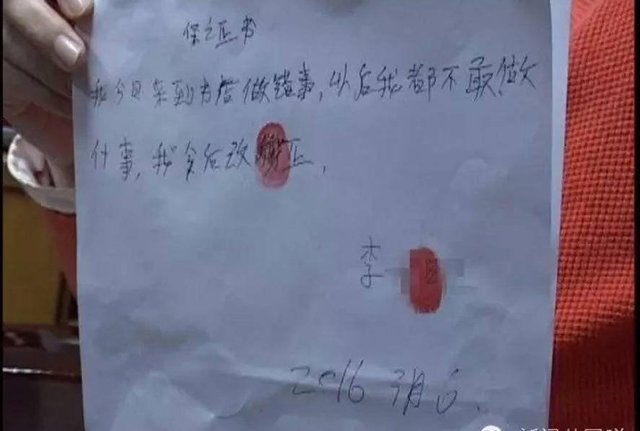 保证书
我今日来到书店做错事，以后我都不敢做
什事，我今后改正，
李
2016 3月6.